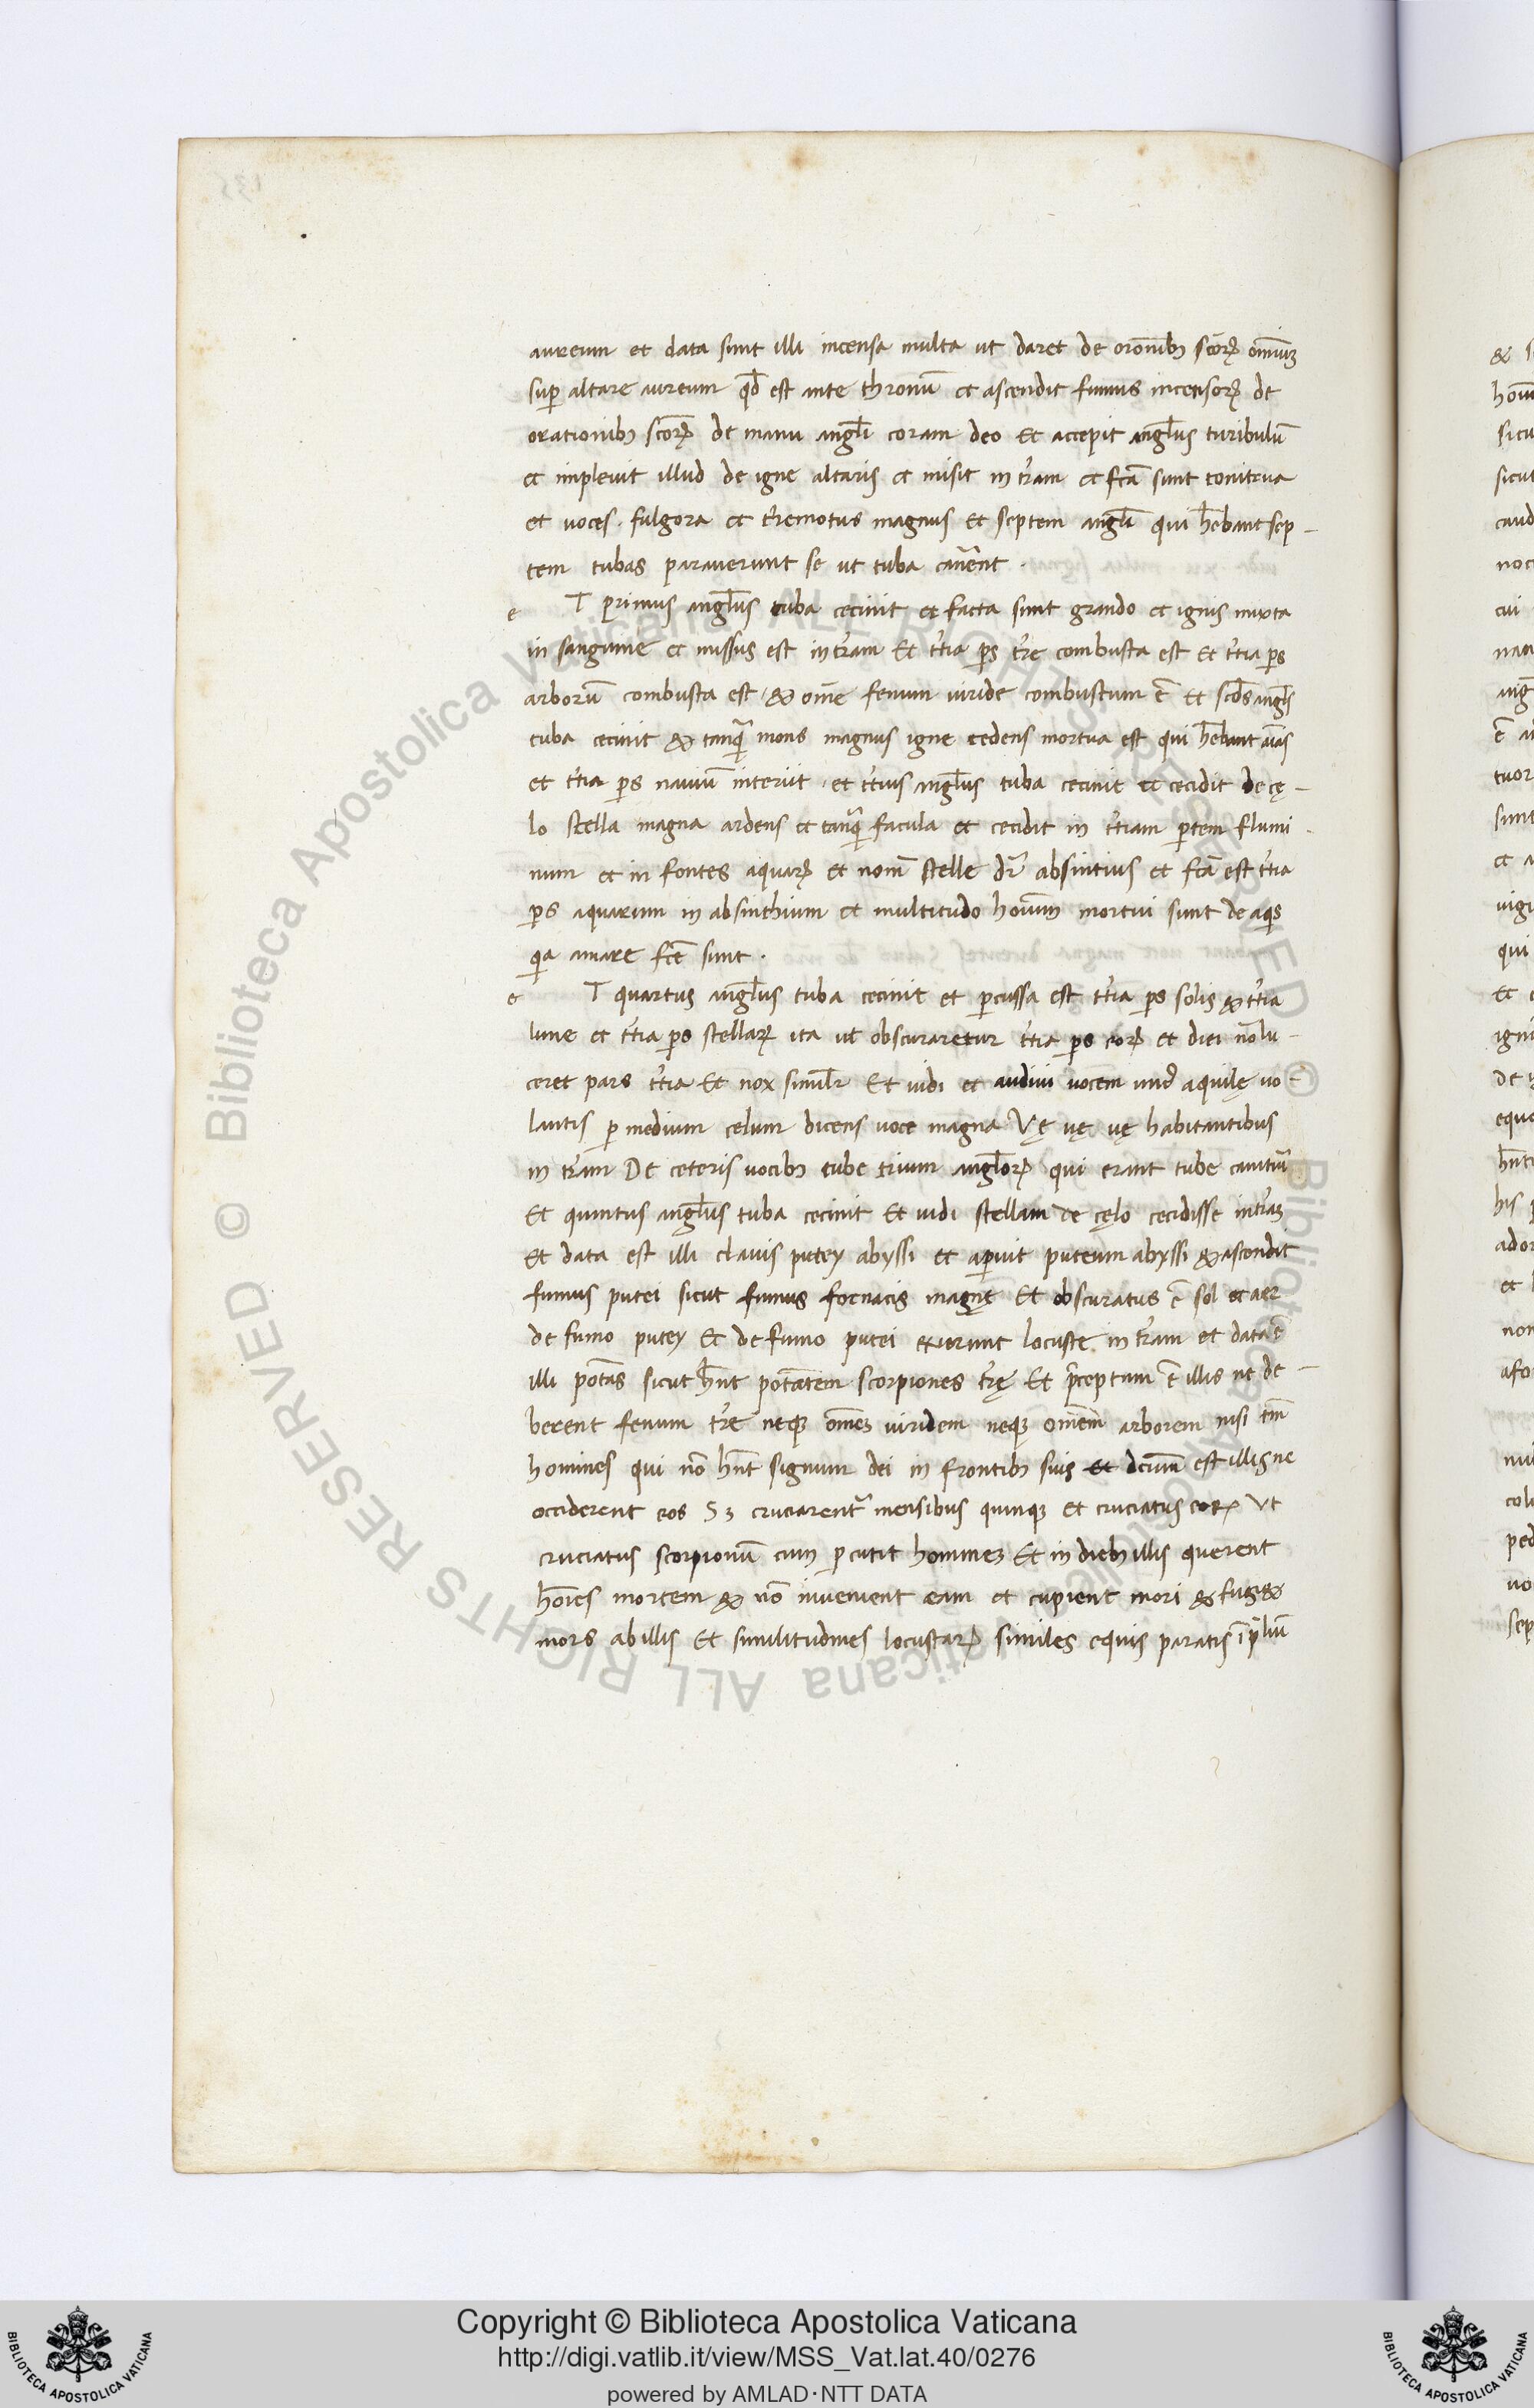 aureum et data sunt illi incensa multa ut daret de oronib; scōꝝ omniuʒ
sup altare aureum qd̄ est ante thronū et ascendit fumus incensoꝝ de
orationib; scōꝝ de manu angl̄i coram deo Et accepit angl̄us turibulū
et implevit illud de igne altaris et misit in tr̄am et fcā sunt tonitrua
et uoces. fulgora et tr̄emotus magnus Et septem angl̄i qui h̄ebant sep-
tem tubas parauerunt se ut tuba canēent.
e T primus angl̄us tuba cecinit et facta sunt grando et ignis mixta
in sanguine et missus est in tr̄am Et tr̄tia ps tr̄e combusta est Et tr̄tia ps
arborū combusta est. & om̄e fenum uiride combustum ē Et scd̄s angl̄s
tuba cecinit & tanq̄ mons magnus igne mortua est qui h̄ebant aīas
et tr̄tia ps nauiū interiit. et tr̄tius angl̄us tuba cecinit et cecidit de cę-
lo stella magna ardens et tanq̄ facula et cecidit in tr̄tiam ptem flumi
num et in fontes aquaꝝ et nom̄ stelle dr̄ absintius et fcā est tr̄tia
ps aquarum in absinthium et multitudo hoīum mortui sunt de aqs
qa amare fcē sunt.
e T quartus angl̄us tuba cecinit et pcussa est tr̄tia ps solis & tr̄tia
lune et tr̄tia ps stellaꝝ ita ut obscuraretur tr̄tia ps eoꝝ et diei nō lu-
ceret pars tr̄tia Et nox simil̄r Et uidi et audiui uocem aquilę uo-
lantis p medium celum dicens uoce magna Vę uę uę habitantibus
in tr̄am De ceteris uocib; tube trium angl̄oꝝ qui erant tube
Et quintus angl̄us tuba cecinit Et uidi stellam de cęlo cecidisse in tr̄aʒ
Et data est illi clauis putey abyssi et apuit puteum abyssi & ascendit
fumus putei sicut fumus fornacis magnę Et obscuratus ē sol et aer
de fumo putey Et de fumo putei exierunt locuste in tr̄am et data ē
illi potās sicut h̄nt potātem scorpiones tr̄ę Et p̄ceptum ē illis ne de-
berent fenum tr̄e neqʒ om̄eʒ uiridem neqʒ om̄em arborem nisi tm̄
homines qui nō h̄nt signum dei in frontib; suis Et dcūm est illis ne
occiderent eos Sʒ cruciarent̄ mensibus quinqʒ Et cruciatus eoꝝ Vt
cruciatus scorpionū cum pcutit homineʒ Et in dieb; illis querent
hoīes mortem & nō inuenient eam et cupient mori & fugi&
mors ab illis Et similitudines locustaꝝ similes equis paratis ī p̄liū
Copyright © Biblioteca Apostolica Vaticana
http://digi.vatlib.it/view/MSS_Vat.lat.40/0276
powered by AMLAD·NTT DATA